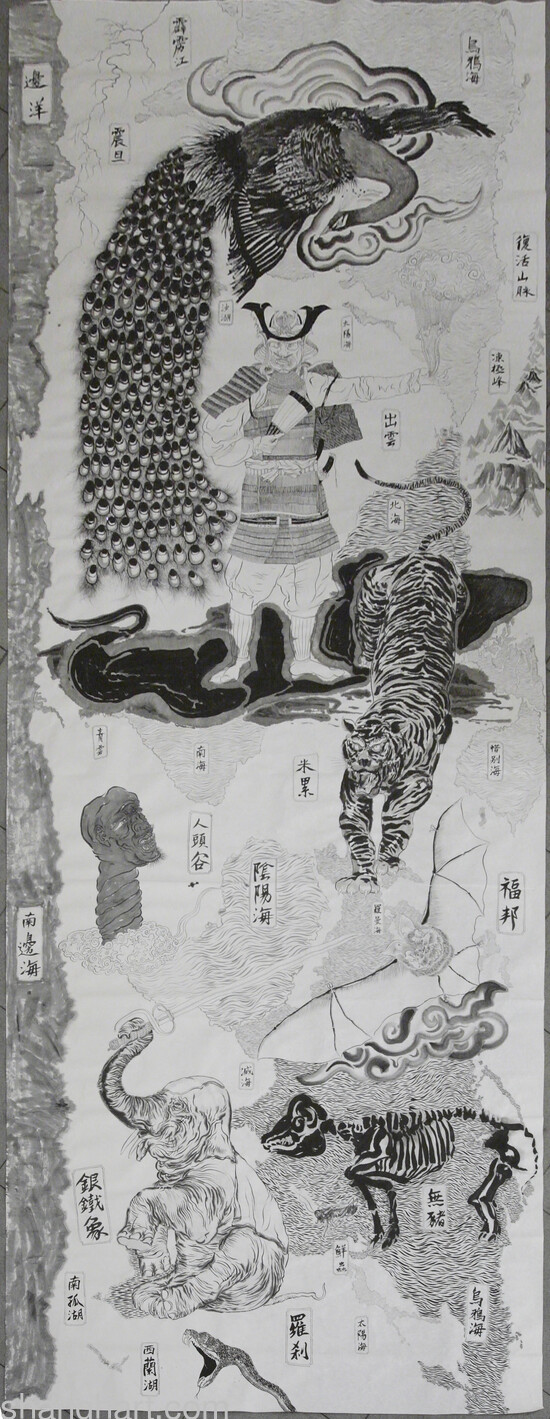 霹靂江
烏鴉海
邊洋
震旦
復活山脉
沙湖
太陽海
凍極峰
出雲
北海
青雪
南海
米累
惜別海
人頭谷
陰陽海
福邦
南邊海
滅海
銀鐵象
無豬
鮮血
南孤湖
羅刹
太陽海
烏鴉海
西蘭湖
shanghart.com